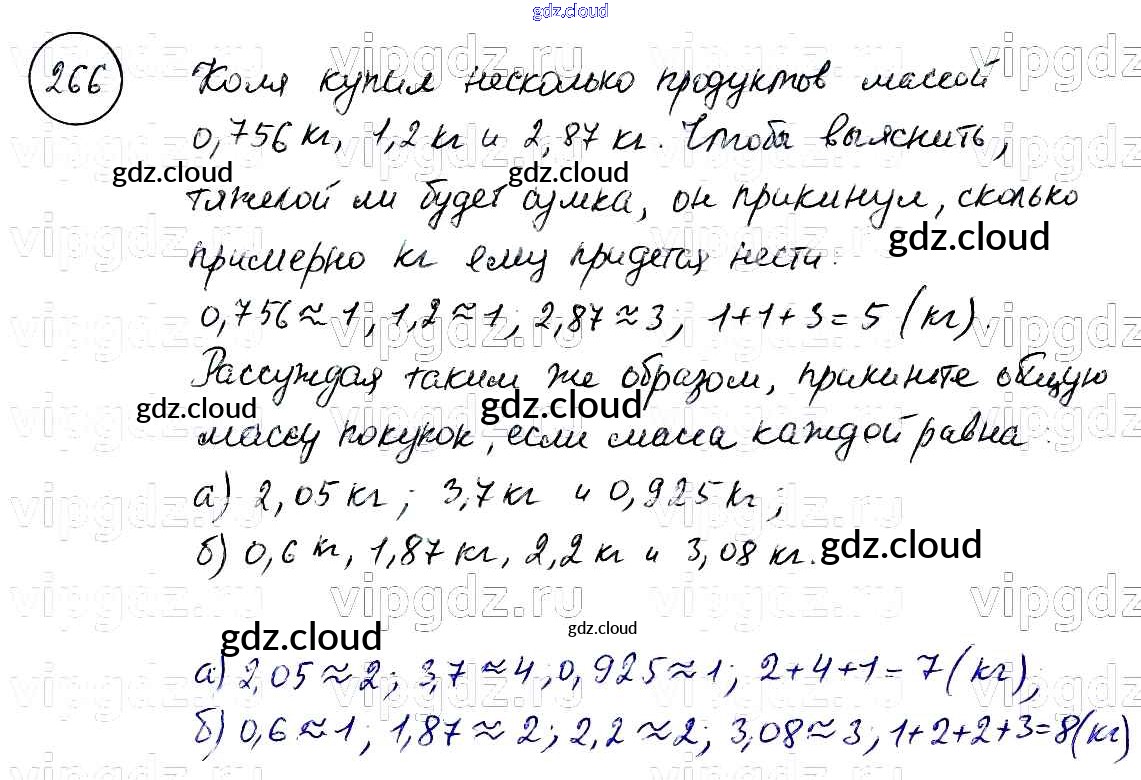 gdz.cloud
266 Коля купил несколько продуктов массой
0,756 кг, 1,2 кг и 2,87 кг. Чтобы выяснить,
gdz.cloud gdz.cloud
тяжелой ли будет сумка, он прикинул, сколько
примерно кг ему придется нести:
gdz.cloud
0,756≈1; 1,2≈1; 2,87≈3; 1+1+3=5 (кг).
Рассуждая таким же образом, прикиньте общую
gdz.cloud gdz.cloud
массу покупок, если масса каждой равна:
а) 2,05 кг; 3,7 кг и 0,925 кг;
б) 0,6 кг, 1,87 кг, 2,2 кг и 3,08 кг.
gdz.cloud
vipgdz.ru
gdz.cloud gdz.cloud
а) 2,05≈2; 3,7≈4; 0,925≈1; 2+4+1=7 (кг);
б) 0,6≈1; 1,87≈2; 2,2≈2; 3,08≈3; 1+2+2+3=8(кг)